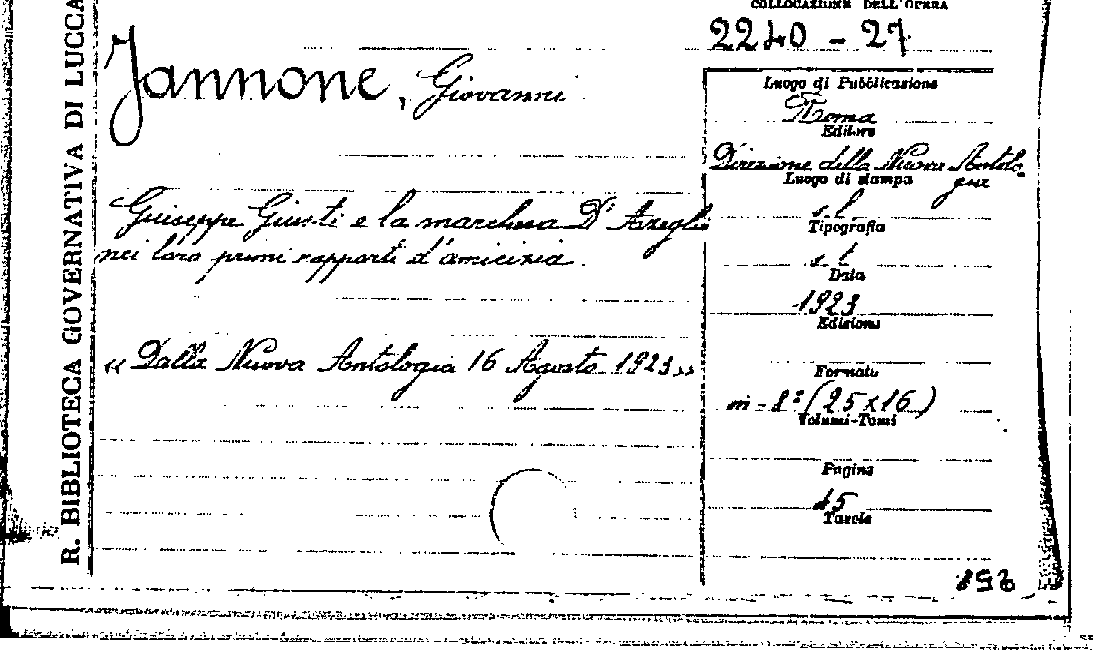 COLLOCAZIONE DELL'OPERA
2240 - 27
R. BIBLIOTECA GOVERNATIVA DI LUCCA
Jannone, Giovanni
Giuseppe Giusti e la marchesa D'Azeglio
nei loro primi rapporti d'amicizia.
« Dalla Nuova Antologia 16 Agosto 1923 »
Luogo di Pubblicazione
Roma
Editore
Direzione della Nuova Antolo-
gia
Luogo di stampa
s. l.
Tipografia
s. t.
Data
1923
Edizione
Formato
in - 8° (25x16)
Volumi-Tomi
Pagine
15
Tavole